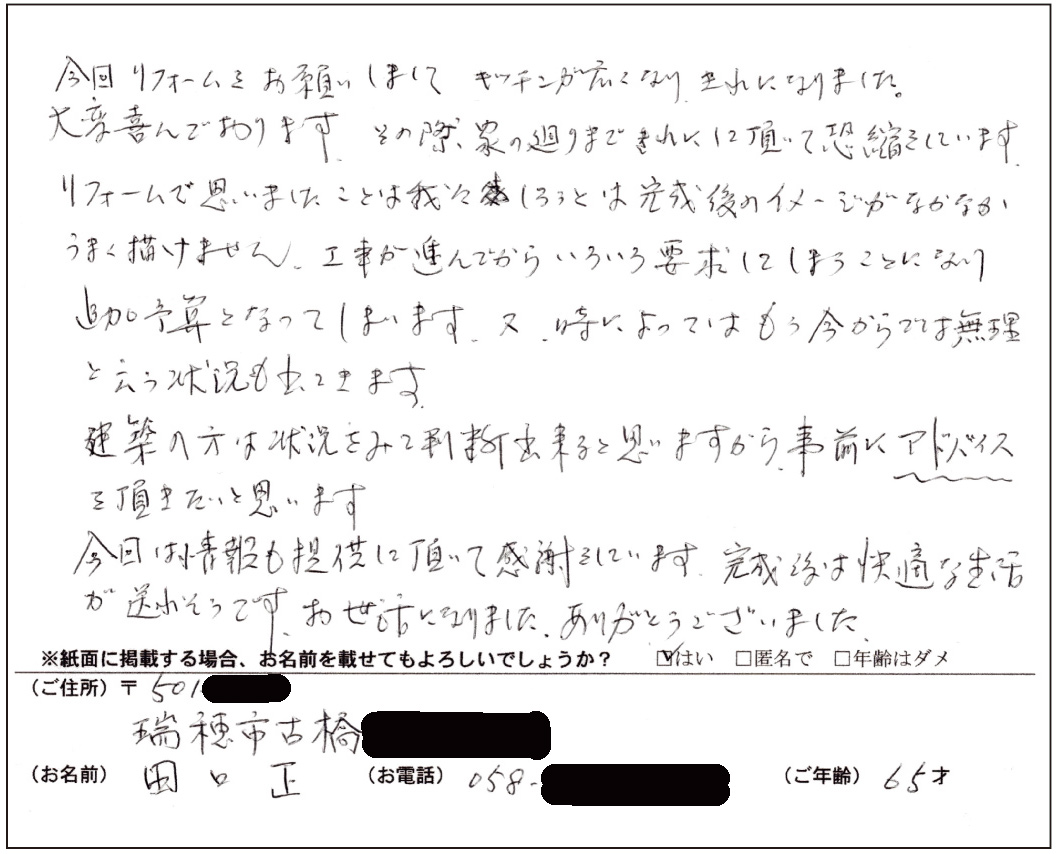 今回リフォームをお願いしまして キッチンが広くなり、きれいになりました。
大変喜んでおります。その際、家の廻りまできれいにして頂いて恐縮をしています。
リフォームで思いましたことは我々しろうとは完成後のイメージがなかなか
うまく描けません、工事が進んでからいろいろ要求してしまうことになり
追加予算となってしまいます。又、時によってはもう今からでは無理
と云う状況も出てきます。
建築の方は状況をみて判断出来ると思いますから、事前にアドバイス
を頂きたいと思います
今回は情報も提供して頂いて感謝をしています。完成後は快適な生活
が送れそうです。お世話になりました、ありがとうございました。
※紙面に掲載する場合、お名前を載せてもよろしいでしょうか? ☑はい □匿名で □年齢はダメ
(ご住所)〒501
瑞穂市古橋
(お名前) 田口 正 (お電話) 058- (ご年齢) 65才